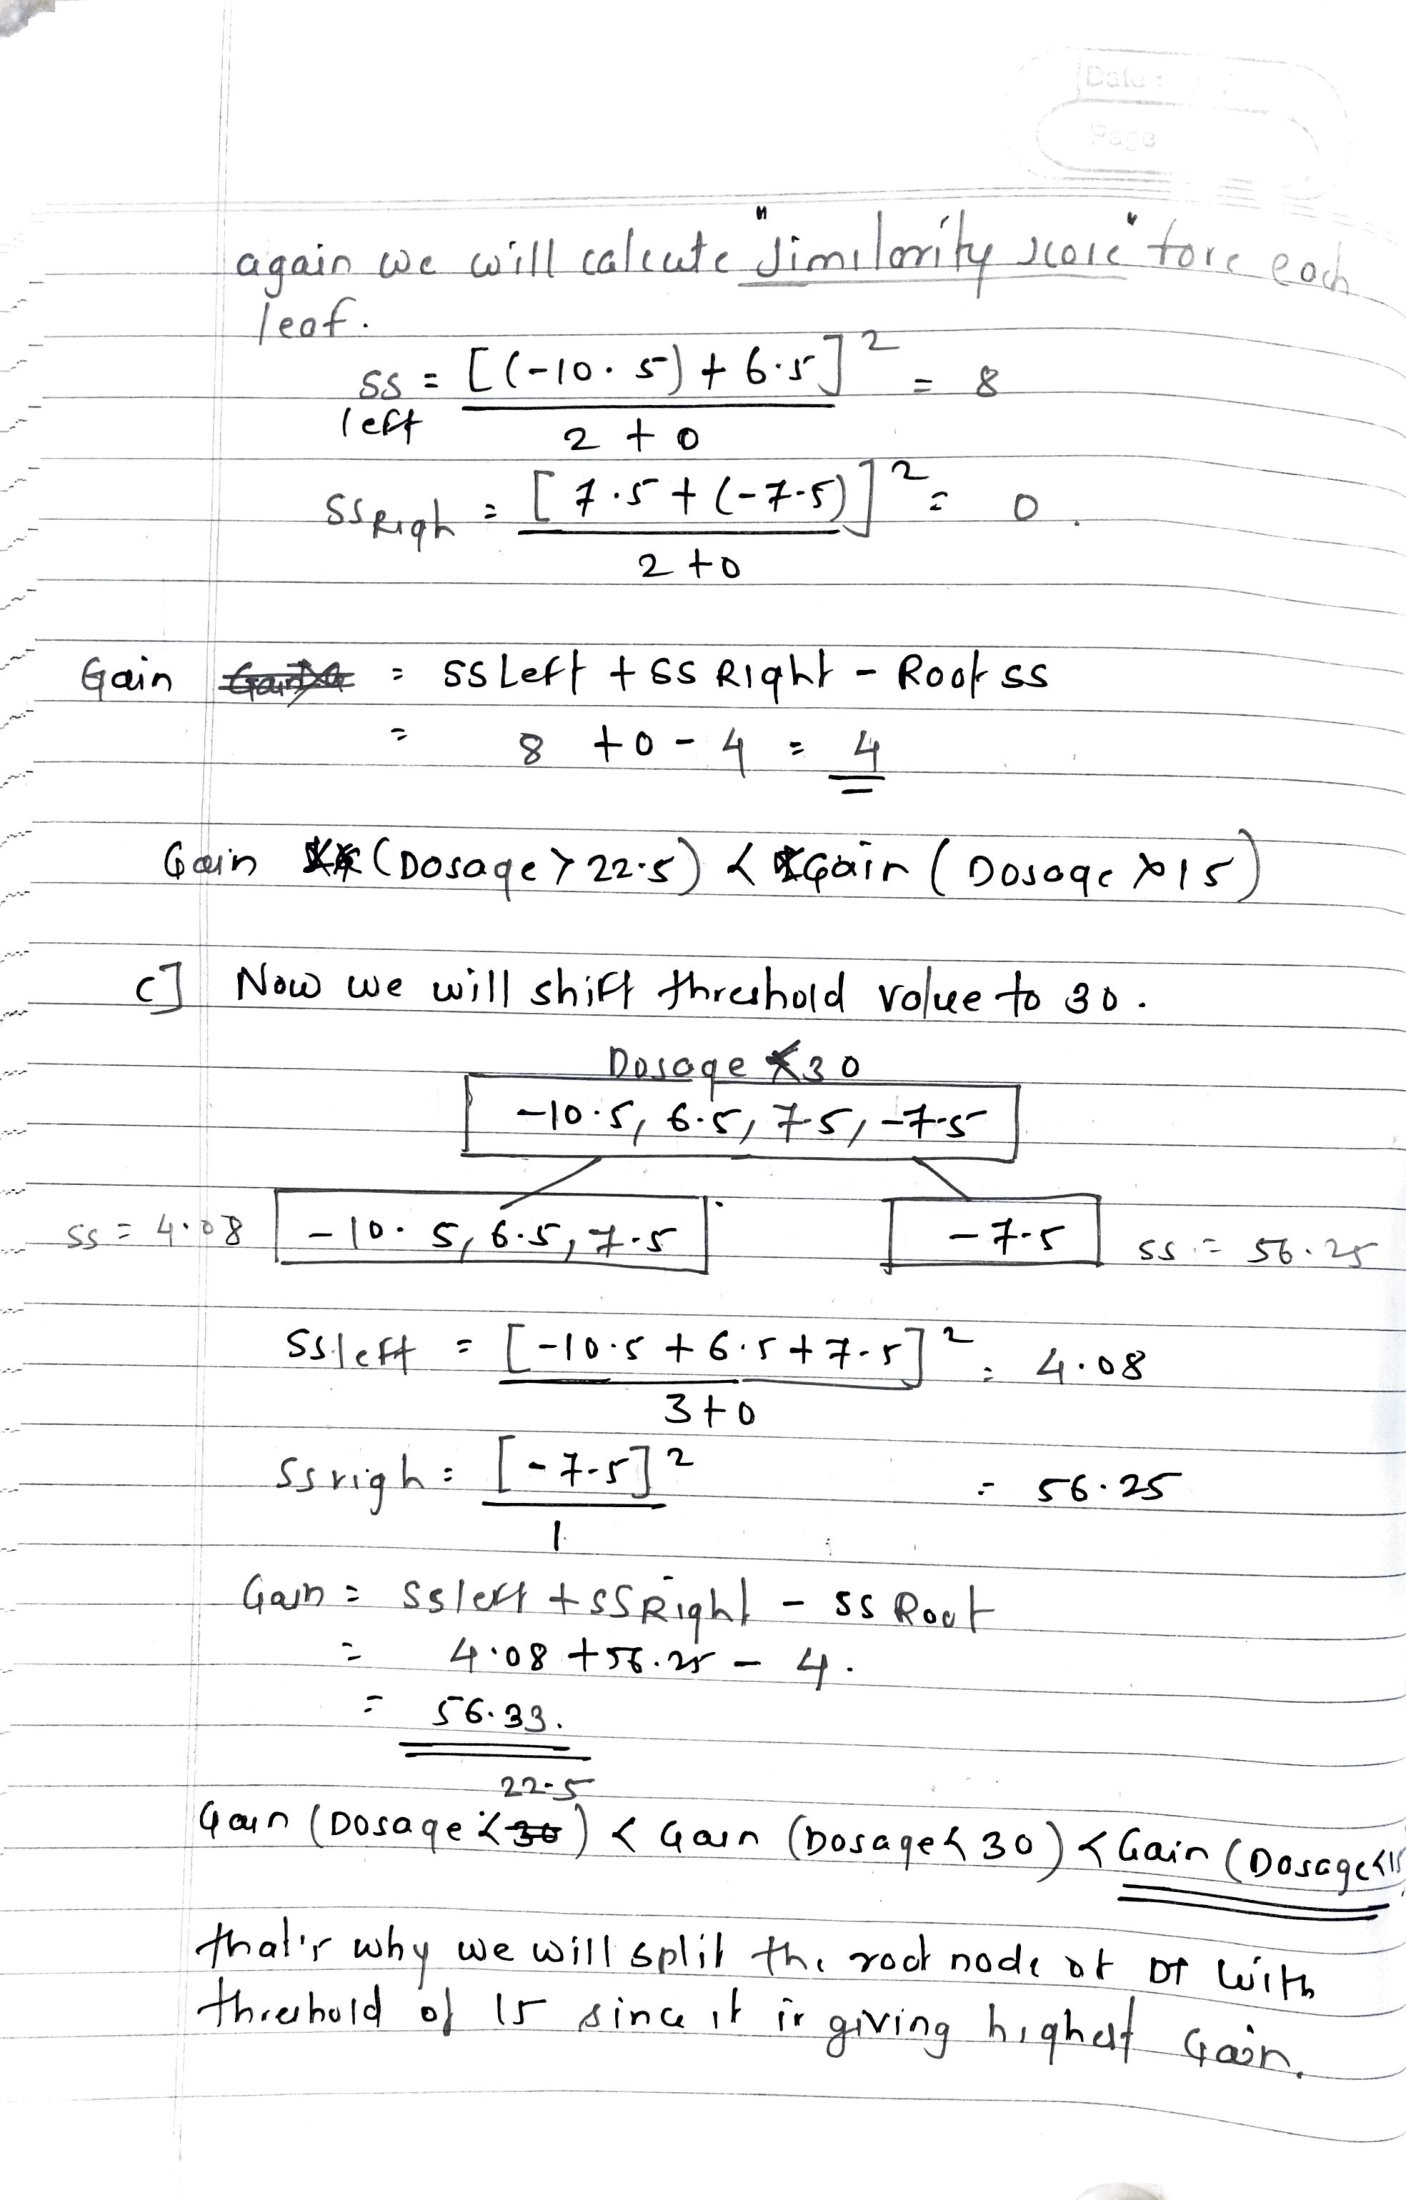 Date :
Page
again we will calcute "similarity score" fore each
leaf.
SS left = [(-10.5) + 6.5]² / 2 + 0 = 8
SS Righ = [7.5 + (-7.5)]² / 2 + 0 = 0.
Gain = SS Left + SS Right - Root SS
= 8 + 0 - 4 = 4
Gain (Dosage > 22.5) < Gain (Dosage > 15)
c] Now we will shift threshold value to 30.
Dosage < 30
-10.5, 6.5, 7.5, -7.5
SS = 4.08 -10.5, 6.5, 7.5 -7.5 SS = 56.25
SS left = [-10.5 + 6.5 + 7.5]² / 3 + 0 = 4.08
SS righ = [-7.5]² / 1 = 56.25
Gain = SS left + SS Right - SS Root
= 4.08 + 56.25 - 4.
= 56.33.
22.5
Gain (Dosage < 30) < Gain (Dosage < 30) < Gain (Dosage < 15
that's why we will split the root node of DT with
threshold of 15 since it is giving highest Gain.